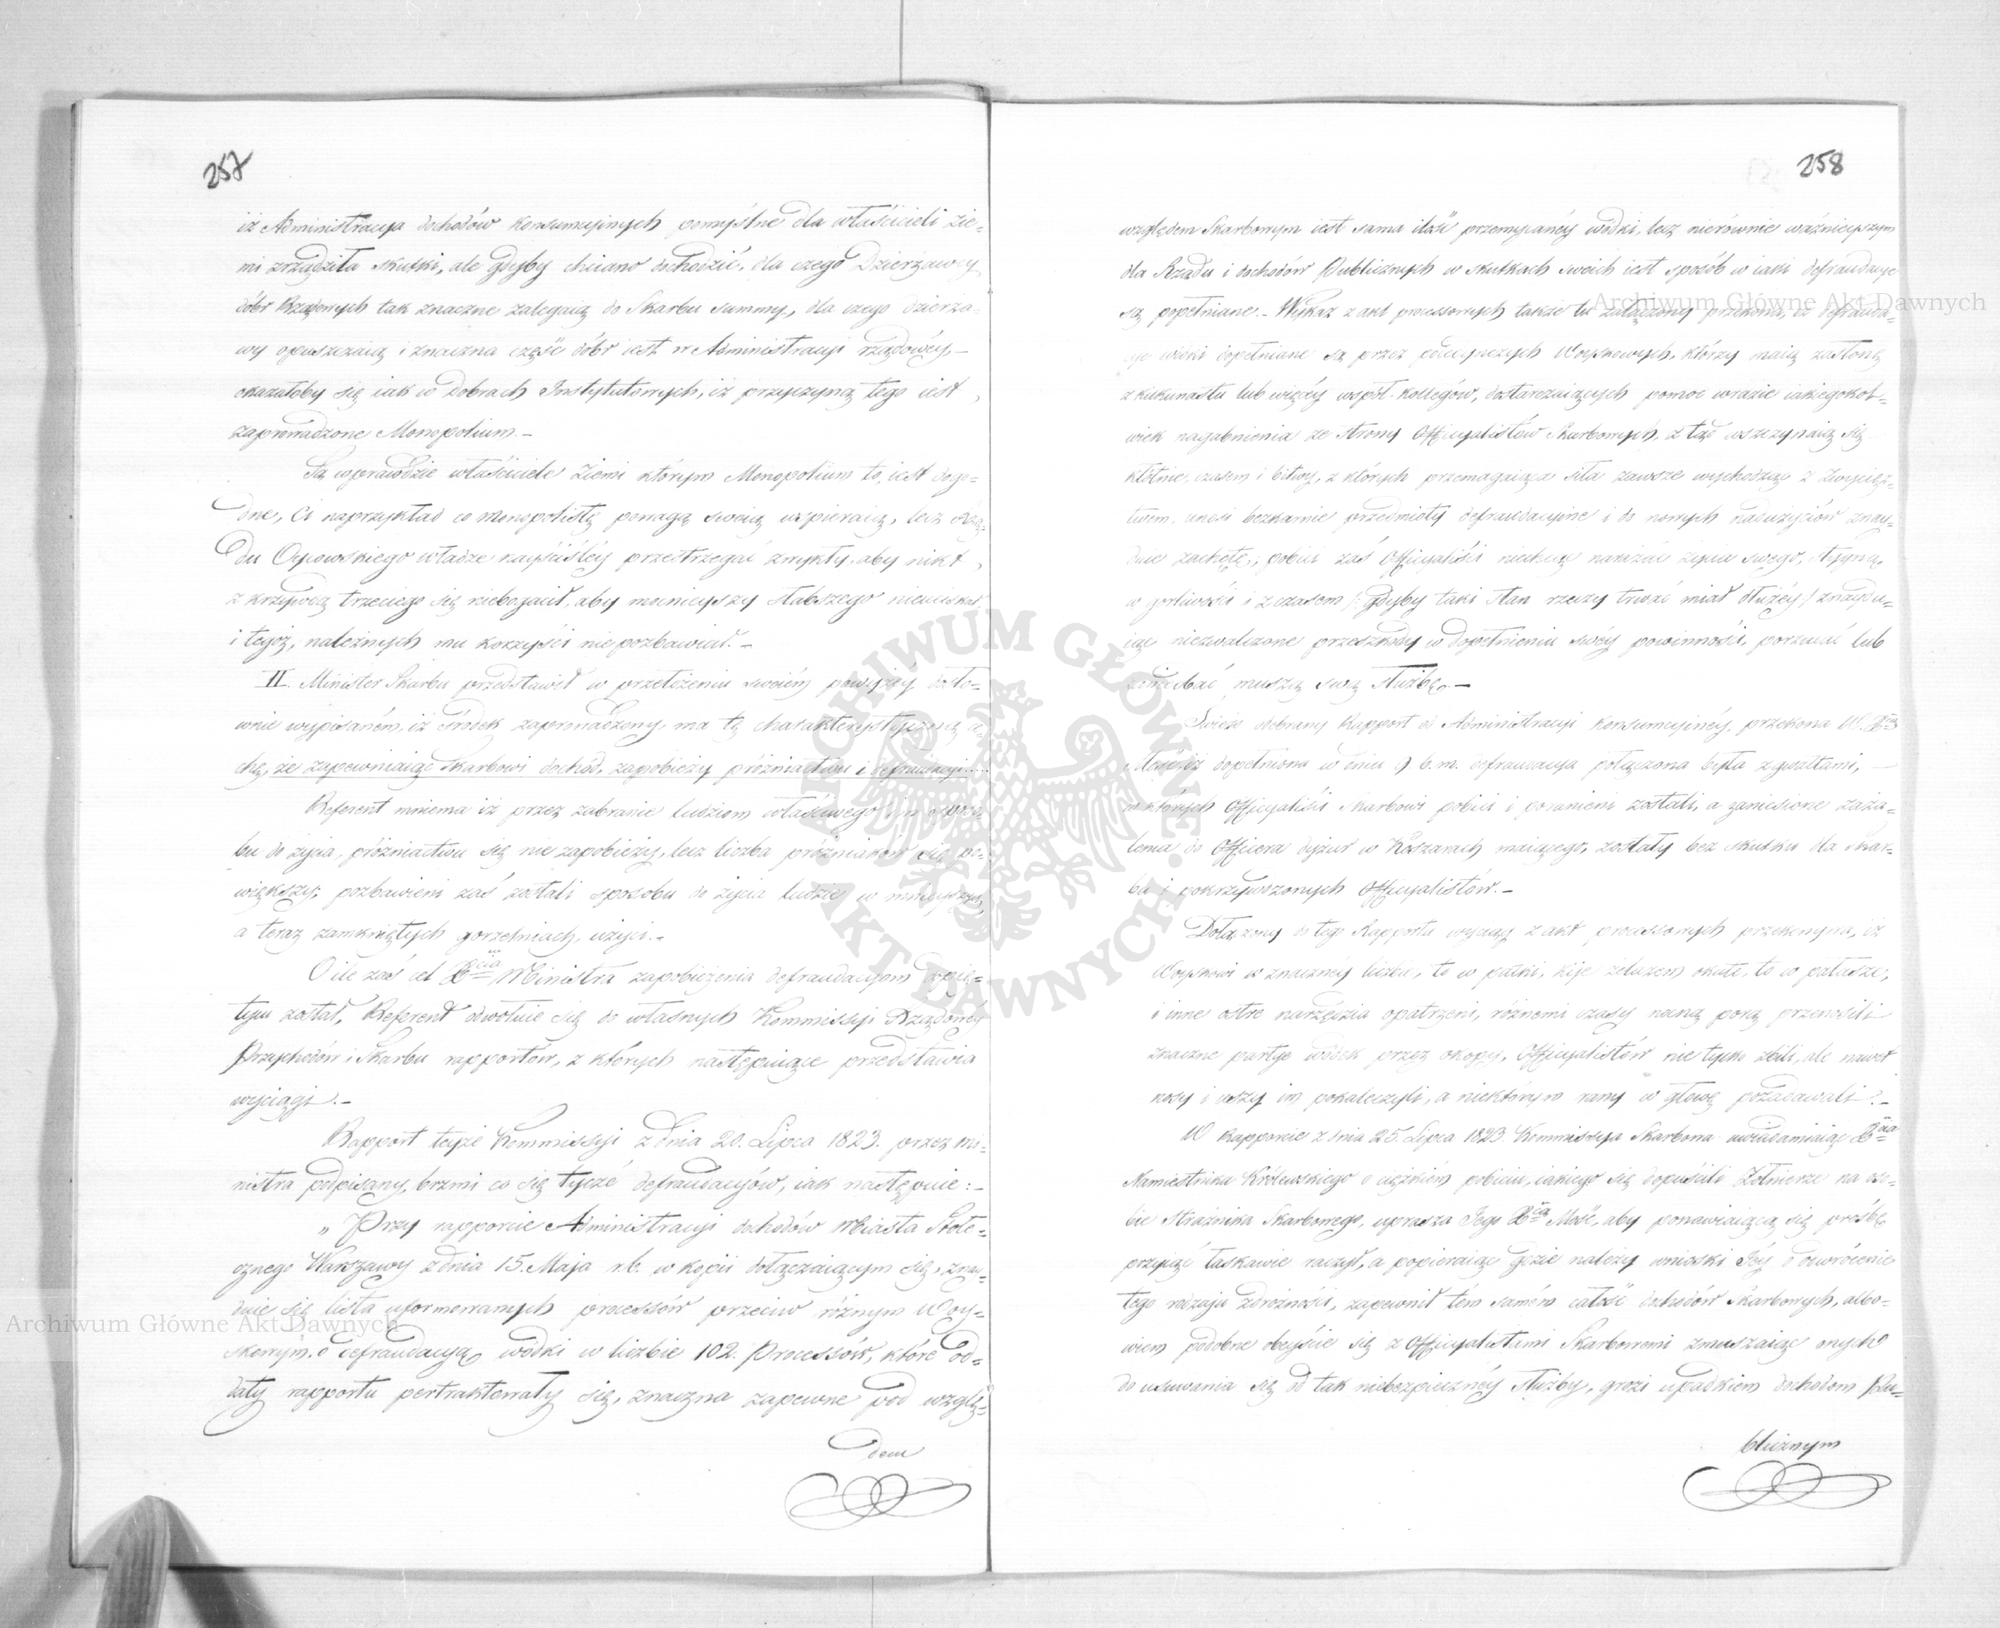 257
iż Administracya dochodów konsumcyinych pomyślne dla właścicieli zie-
mi zrządziła skutki, ale gdyby chciano dochodzić, dla czego Dzierżawcy
dóbr Rządowych tak znaczne zalegaią do Skarbu summy, dla czego dzierża-
wy opuszczaią i znaczna część dóbr iest w Administracyi rządowéy,-
okazałoby się iak w dobrach Instytutowych, iż przyczyną tego iest
zaprowadzone Monopolium.-
Są wprawdzie właściciele Ziemi którym Monopolium to, iest dogo-
dne, Ci naprzykład co Monopolistę pomagą swoią wspieraią, lecz Rzą-
du Oycowskiego władze nayściśléy przestrzegać zwykły, aby nikt
z krzywdą trzeciego się niebogacił, aby mocnieyszy słabszego nieuciskał
i tegoż, należnych mu korzyści nie pozbawiał.-
II. Minister Skarbu przedstawił w przełożeniu swoiém powyżéy dosło-
wnie wypisaném, iż środek zaprowadzony, ma tę charakterystyczną ce-
chę, że zapewniaiąc Skarbowi dochód, zapobieży próżniactwu i defraudacyi.....
Referent mniema iż przez zabranie ludziom właściwego im sposo-
bu do życia, próżniactwu się nie zapobieży, lecz liczba próżniaków się po-
większy; pozbawieni zaś zostali sposobu do życia ludzie w mnieyszych
a teraz zamkniętych gorzelniach, użyci.-
O ile zaś cel Xcia Ministra zapobieżenia defraudacyom dopię-
tym został, Referent odwołuie się do własnych Kommissyi Rządowéy
Przychodów i Skarbu rapportów, z których następuiące przedstawia
wyciągi.-
Rapport teyże Kommissyi z dnia 20. Lipca 1823. przez Mi-
nistra podpisany, brzmi co się tycze defraudacyów, iak następuie:-
„Przy rapporcie Administracyi dochodów Miasta Stołe-
cznego Warszawy z dnia 15. Maja r.b. w kopii dołączaiącym się, znay-
duie się lista uformowanych processów przeciw różnym Woy-
skowym, o defraudacyą wódki w liczbie 102. Processów, które od
daty rapportu pertraktowały się, znaczna zapewne pod wzglę-
dem
258
względem Skarbowym iest sama ilość przemycanéy wódki, lecz nierównie ważnieyszym
dla Rządu i dochodów Publicznych w skutkach swoich iest sposób w iaki defraudacye
są popełniane.- Wykaz z akt processowych także tu załączony przekona, iż defrauda-
cye wódki dopełniane są przez poiedynczych Woyskowych, którzy maią zasłonę
z kilkunastu lub więcéy współ-kollegów, dostarczaiących pomoc w razie iakiegokol-
wiek nagabnienia ze strony Officyalistów Skarbowych, z tąd wszczynaią się
kłótnie, czasem i bitwy, z których przemagaiąca siła zawsze wychodząc z zwycięz-
twem, unosi bezkarnie przedmioty defraudacyine i do nowych nadużyciów znay-
duie zachętę, pobici zaś Officyaliści niechcąc narażać życia swego, stygną
w gorliwości i z czasem /: gdyby taki stan rzeczy trwać miał dłużéy :/ znaydu-
iąc niezwalczone przeszkody w dopełnieniu swéy powinności, porzucać lub
zaniedbać muszą swą służbę.-
Świeżo odebrany Rapport od Administracyi Konsumcyinéy, przekona W. Xcią
Mość iż dopełniona w dniu 9 b.m. defraudacya połączona była z gwałtami,
w których Officyaliści Skarbowi pobici i poranieni zostali, a zaniesione zaża-
lenia do Officera dyżur w Koszarach maiącego, zostały bez skutku dla Skar-
bu i pokrzywdzonych Officyalistów.-
Dołączony do tego Rapportu wyciąg z akt processowych przekonywa, iż
Woyskowi w znacznéy liczbie, to w pałki, kije żelazem okute, to w pałasze,
i inne ostre narzędzia opatrzeni, różnemi czasy nocną porą przenosili
znaczne partye wódek przez okopy, Officyalistów nie tylko zbili, ale nawet
nosy i uszy im pokaleczyli, a niektórym rany w głowę pozadawali.-
W Rapporcie z dnia 25. Lipca 1823. Kommissya Skarbowa uwiadamiaiąc Xcia
Namiestnika Królewskiego o ciężkiém pobiciu, iakiego się dopuścili Żołnierze na oso-
bie Strażnika Skarbowego, uprasza Jego Xcią Mość, aby ponawiaiącą się prośbę
przyiąć łaskawie raczył, a popieraiąc gdzie należy wnioski Jéy o odwrócenie
tego rodzaju zdrożności, zapewnił tem samém całość dochodów Skarbowych, albo-
wiem podobne obeyście się z Officyalistami Skarbowemi zmuszaiąc onych
do usuwania się od tak niebezpiecznéy służby, grozi upadkiem dochodom Pu-
blicznym
Archiwum Główne Akt Dawnych
Archiwum Główne Akt Dawnych
ARCHIWUM GŁÓWNE AKT DAWNYCH